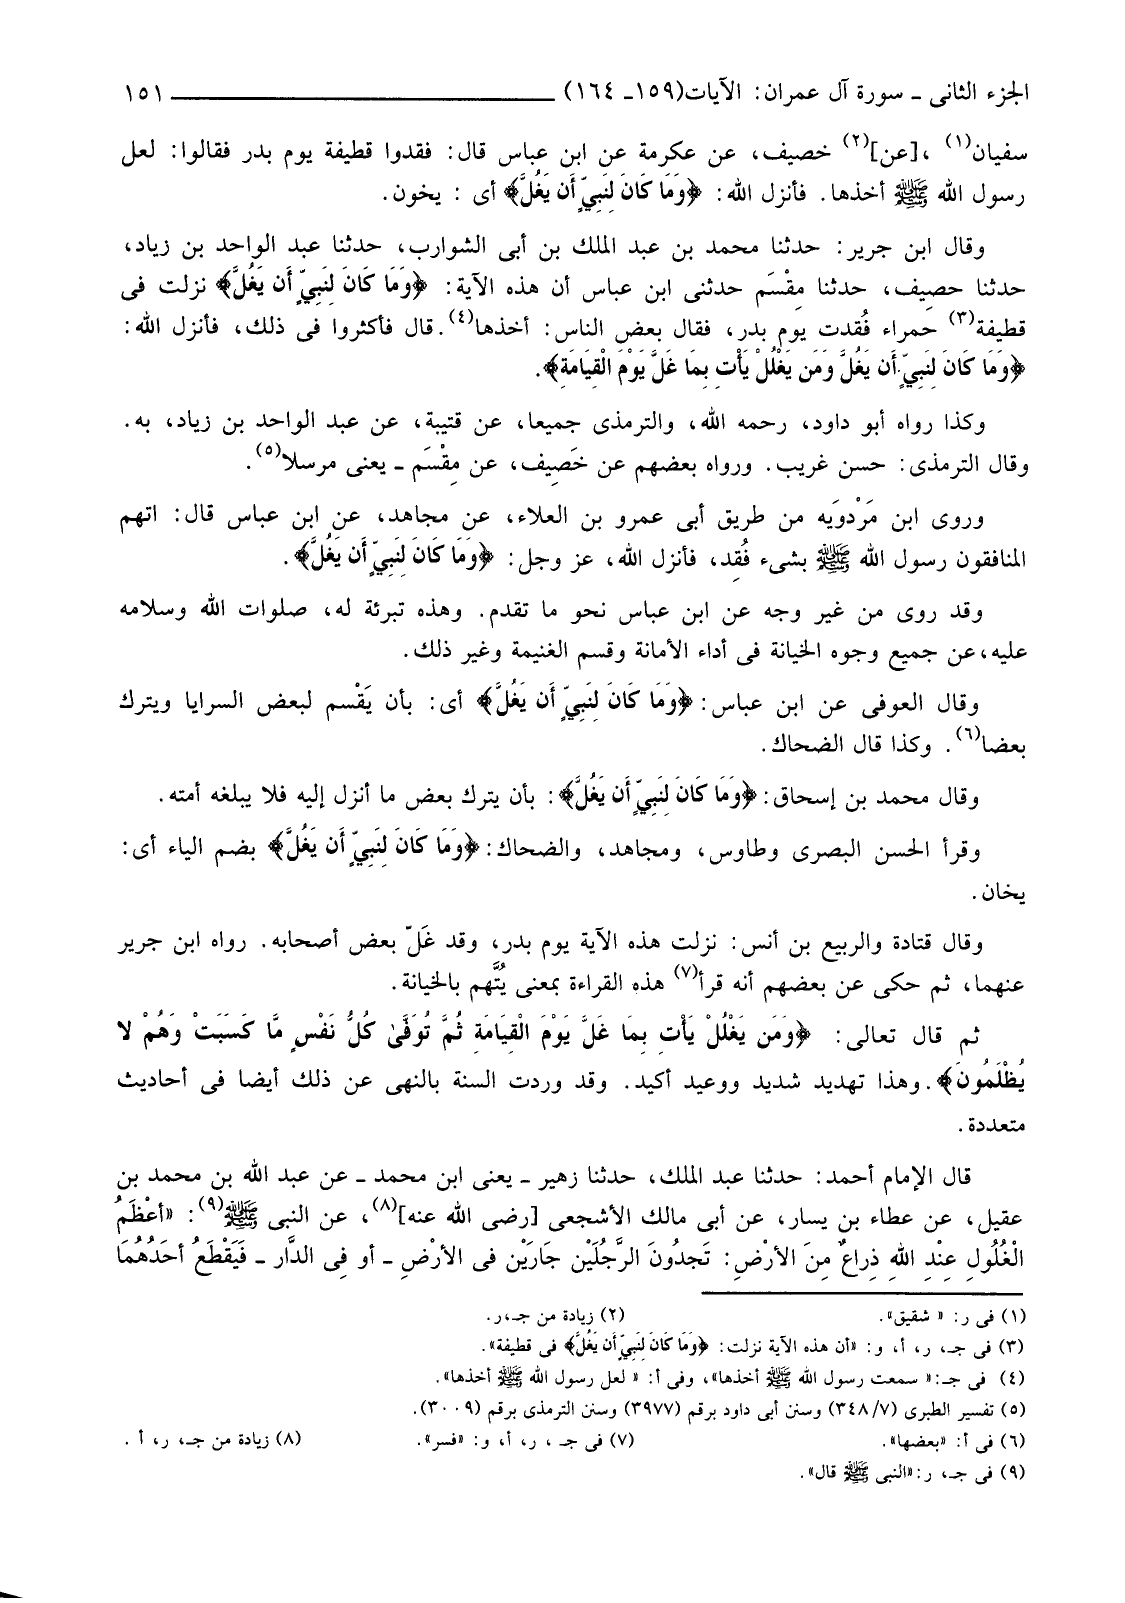 الجزء الثانى ـ سورة آل عمران: الآيات(١٥٩ـ ١٦٤) ١٥١
سفيان(١) ،[عن](٢) خصيف، عن عكرمة عن ابن عباس قال: فقدوا قطيفة يوم بدر فقالوا: لعل
رسول الله ﷺ أخذها. فأنزل الله: ﴿وَمَا كَانَ لِنَبِيٍّ أَن يَغُلَّ﴾ أى : يخون.
وقال ابن جرير: حدثنا محمد بن عبد الملك بن أبى الشوارب، حدثنا عبد الواحد بن زياد،
حدثنا حصيف، حدثنا مِقْسَم حدثنى ابن عباس أن هذه الآية: ﴿وَمَا كَانَ لِنَبِيٍّ أَن يَغُلَّ﴾ نزلت فى
قطيفة(٣) حمراء فُقدت يوم بدر، فقال بعض الناس: أخذها(٤).قال فأكثروا فى ذلك، فأنزل الله:
﴿وَمَا كَانَ لِنَبِيٍّ أَن يَغُلَّ وَمَن يَغْلُلْ يَأْتِ بِمَا غَلَّ يَوْمَ الْقِيَامَةِ﴾.
وكذا رواه أبو داود، رحمه الله، والترمذى جميعا، عن قتيبة، عن عبد الواحد بن زياد، به.
وقال الترمذى: حسن غريب. ورواه بعضهم عن خَصِيف، عن مِقْسَم ـ يعنى مرسلا(٥).
وروى ابن مَرْدوَيه من طريق أبى عمرو بن العلاء، عن مجاهد، عن ابن عباس قال: اتهم
المنافقون رسول الله ﷺ بشىء فُقِد، فأنزل الله، عز وجل: ﴿وَمَا كَانَ لِنَبِيٍّ أَن يَغُلَّ﴾.
وقد روى من غير وجه عن ابن عباس نحو ما تقدم. وهذه تبرئة له، صلوات الله وسلامه
عليه،عن جميع وجوه الخيانة فى أداء الأمانة وقسم الغنيمة وغير ذلك.
وقال العوفى عن ابن عباس: ﴿وَمَا كَانَ لِنَبِيٍّ أَن يَغُلَّ﴾ أى: بأن يَقْسم لبعض السرايا ويترك
بعضا(٦). وكذا قال الضحاك.
وقال محمد بن إسحاق: ﴿وَمَا كَانَ لِنَبِيٍّ أَن يَغُلَّ﴾: بأن يترك بعض ما أنزل إليه فلا يبلغه أمته.
وقرأ الحسن البصرى وطاوس، ومجاهد، والضحاك: ﴿وَمَا كَانَ لِنَبِيٍّ أَن يَغُلَّ﴾ بضم الياء أى:
يخان.
وقال قتادة والربيع بن أنس: نزلت هذه الآية يوم بدر، وقد غَلّ بعض أصحابه. رواه ابن جرير
عنهما، ثم حكى عن بعضهم أنه قرأ(٧) هذه القراءة بمعنى يُتَّهم بالخيانة.
ثم قال تعالى: ﴿وَمَن يَغْلُلْ يَأْتِ بِمَا غَلَّ يَوْمَ الْقِيَامَةِ ثُمَّ تُوَفَّىٰ كُلُّ نَفْسٍ مَّا كَسَبَتْ وَهُمْ لا
يُظْلَمُونَ﴾.وهذا تهديد شديد ووعيد أكيد. وقد وردت السنة بالنهى عن ذلك أيضا فى أحاديث
متعددة.
قال الإمام أحمد: حدثنا عبد الملك، حدثنا زهير ـ يعنى ابن محمد ـ عن عبد الله بن محمد بن
عقيل، عن عطاء بن يسار، عن أبى مالك الأشجعى [رضى الله عنه](٨)، عن النبى ﷺ(٩): «أعْظَمُ
الْغُلُولِ عِنْدِ اللهِ ذِراعٌ مِنَ الأرْضِ: تَجدُونَ الرَّجُلَيْنِ جَارَيْن فى الأرْضِ ـ أو فِى الدَّارِ ـ فَيَقْطَعُ أحَدُهُمَا
(١) فى ر: « شقيق». (٢) زيادة من جـ،ر.
(٣) فى جـ، ر، أ، و: «أن هذه الآية نزلت: ﴿وَمَا كَانَ لِنَبِيٍّ أَن يَغُلَّ﴾ فى قطيفة».
(٤) فى جـ:« سمعت رسول الله ﷺ أخذها»، وفى أ: « لعل رسول الله ﷺ أخذها».
(٥) تفسير الطبرى (٧/ ٣٤٨) وسنن أبى داود برقم (٣٩٧٧) وسنن الترمذى برقم (٣٠٠٩).
(٦) فى أ: «بعضها». (٧) فى جـ ، ر، أ، و: «فسر». (٨) زيادة من جـ، ر، أ .
(٩) فى جـ، ر:«النبى ﷺ قال».